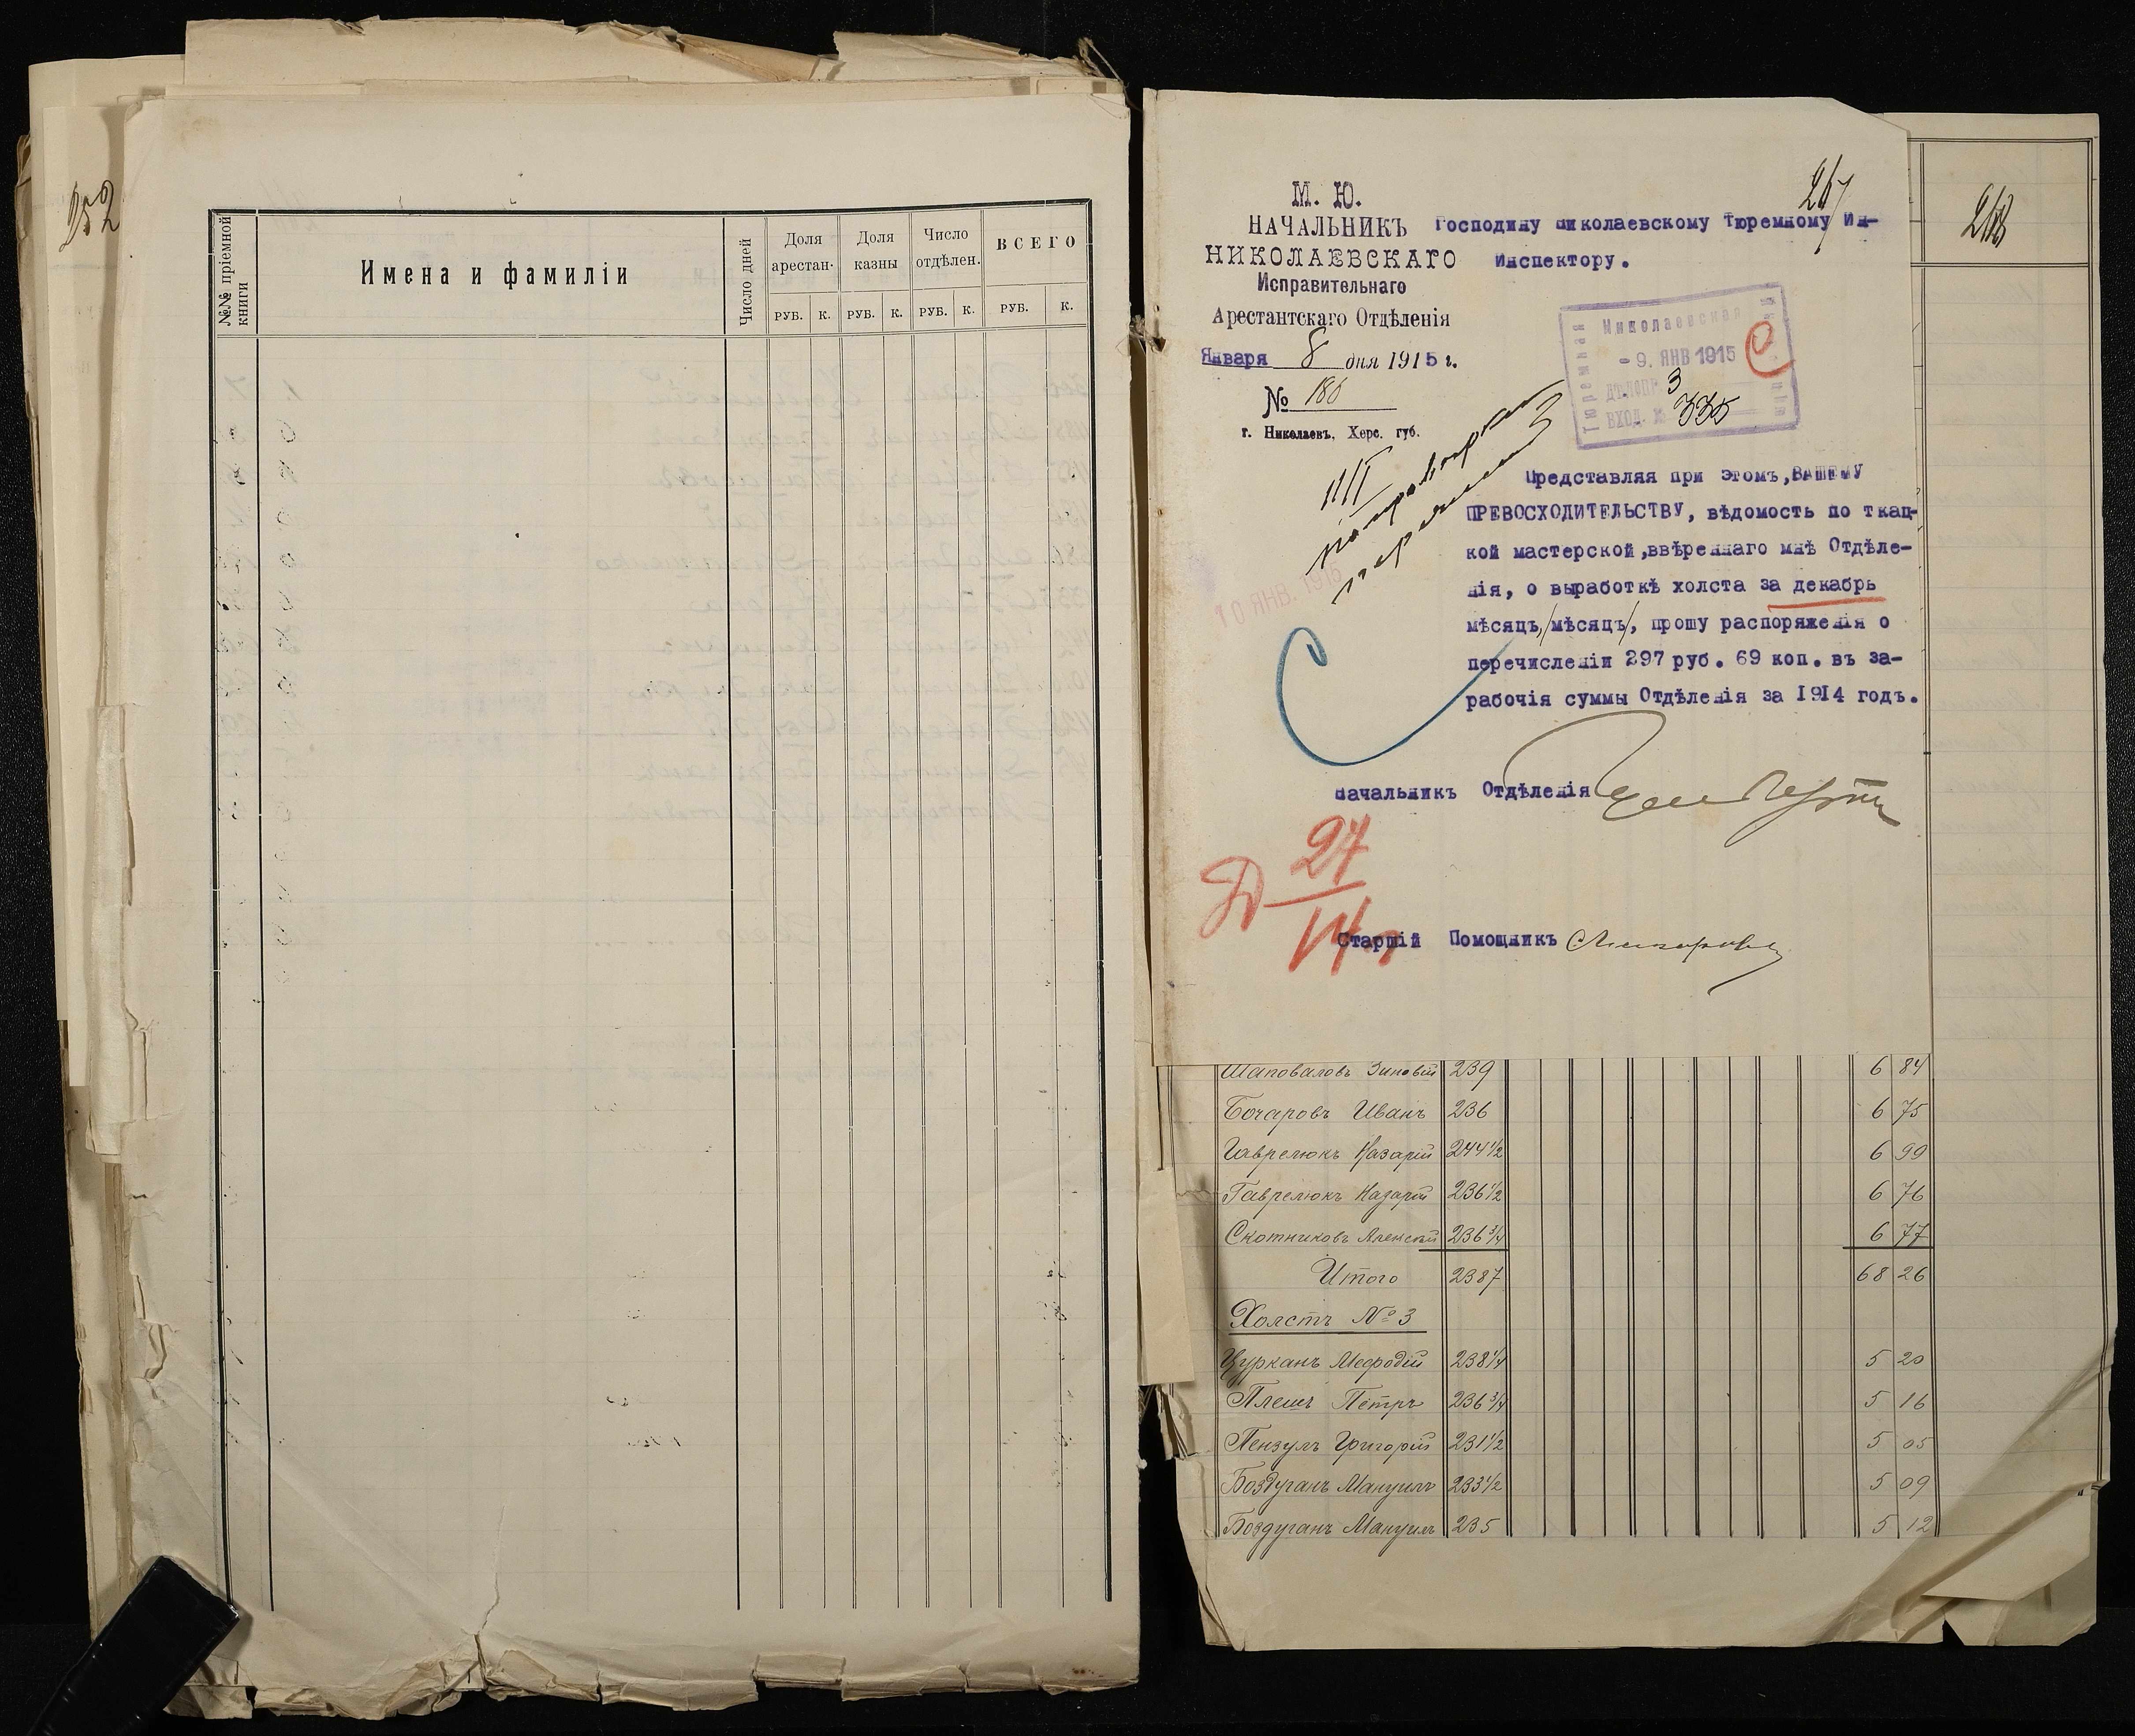 252
№№ пріемной книги
Имена и фамиліи
Число дней
Доля арестан.
Доля казны
Число отдѣлен.
ВСЕГО
РУБ. К. РУБ. К. РУБ. К. РУБ. К.
267
268
М. Ю.
НАЧАЛЬНИКЪ
НИКОЛАЕВСКАГО
Исправительнаго
Арестантскаго Отдѣленія
Января 8 дня 1915 г.
№ 186
г. Николаевъ, Херс. губ.
Господину Николаевскому Тюремному Ин-
Инспектору.
Николаевская
Тюремная
- 9. ЯНВ 1915
ДѢЛОПР. 3
ВХОД. № 335
III
10 ЯНВ. 1915
Представляя при этомъ, ВАШЕМУ
ПРЕВОСХОДИТЕЛЬСТВУ, вѣдомость по ткац-
кой мастерской, ввѣреннаго мнѣ Отдѣле-
нія, о выработкѣ холста за декабрь
мѣсяцъ,/мѣсяцъ/, прошу распоряженія о
перечисленіи 297 руб. 69 коп. въ за-
рабочія суммы Отдѣленія за 1914 годъ.
Начальникъ Отдѣленія
Д 24/14 г
Старшій Помощникъ
Шаповаловъ Зиновій 239 6 84
Бочаровъ Иванъ 236 6 75
Гаврелюкъ Назарій 244 1/2 6 99
Гаврелюкъ Назарій 236 1/2 6 76
Скотниковъ Алексѣй 236 3/4 6 77
Итого 2387 68 26
Холстъ № 3
Цурканъ Мефодій 238 1/4 5 20
Плешъ Петръ 236 3/4 5 16
Пензулъ Григорій 231 1/2 5 05
Боздуганъ Мануилъ 233 1/2 5 09
Боздуганъ Мануилъ 235 5 12